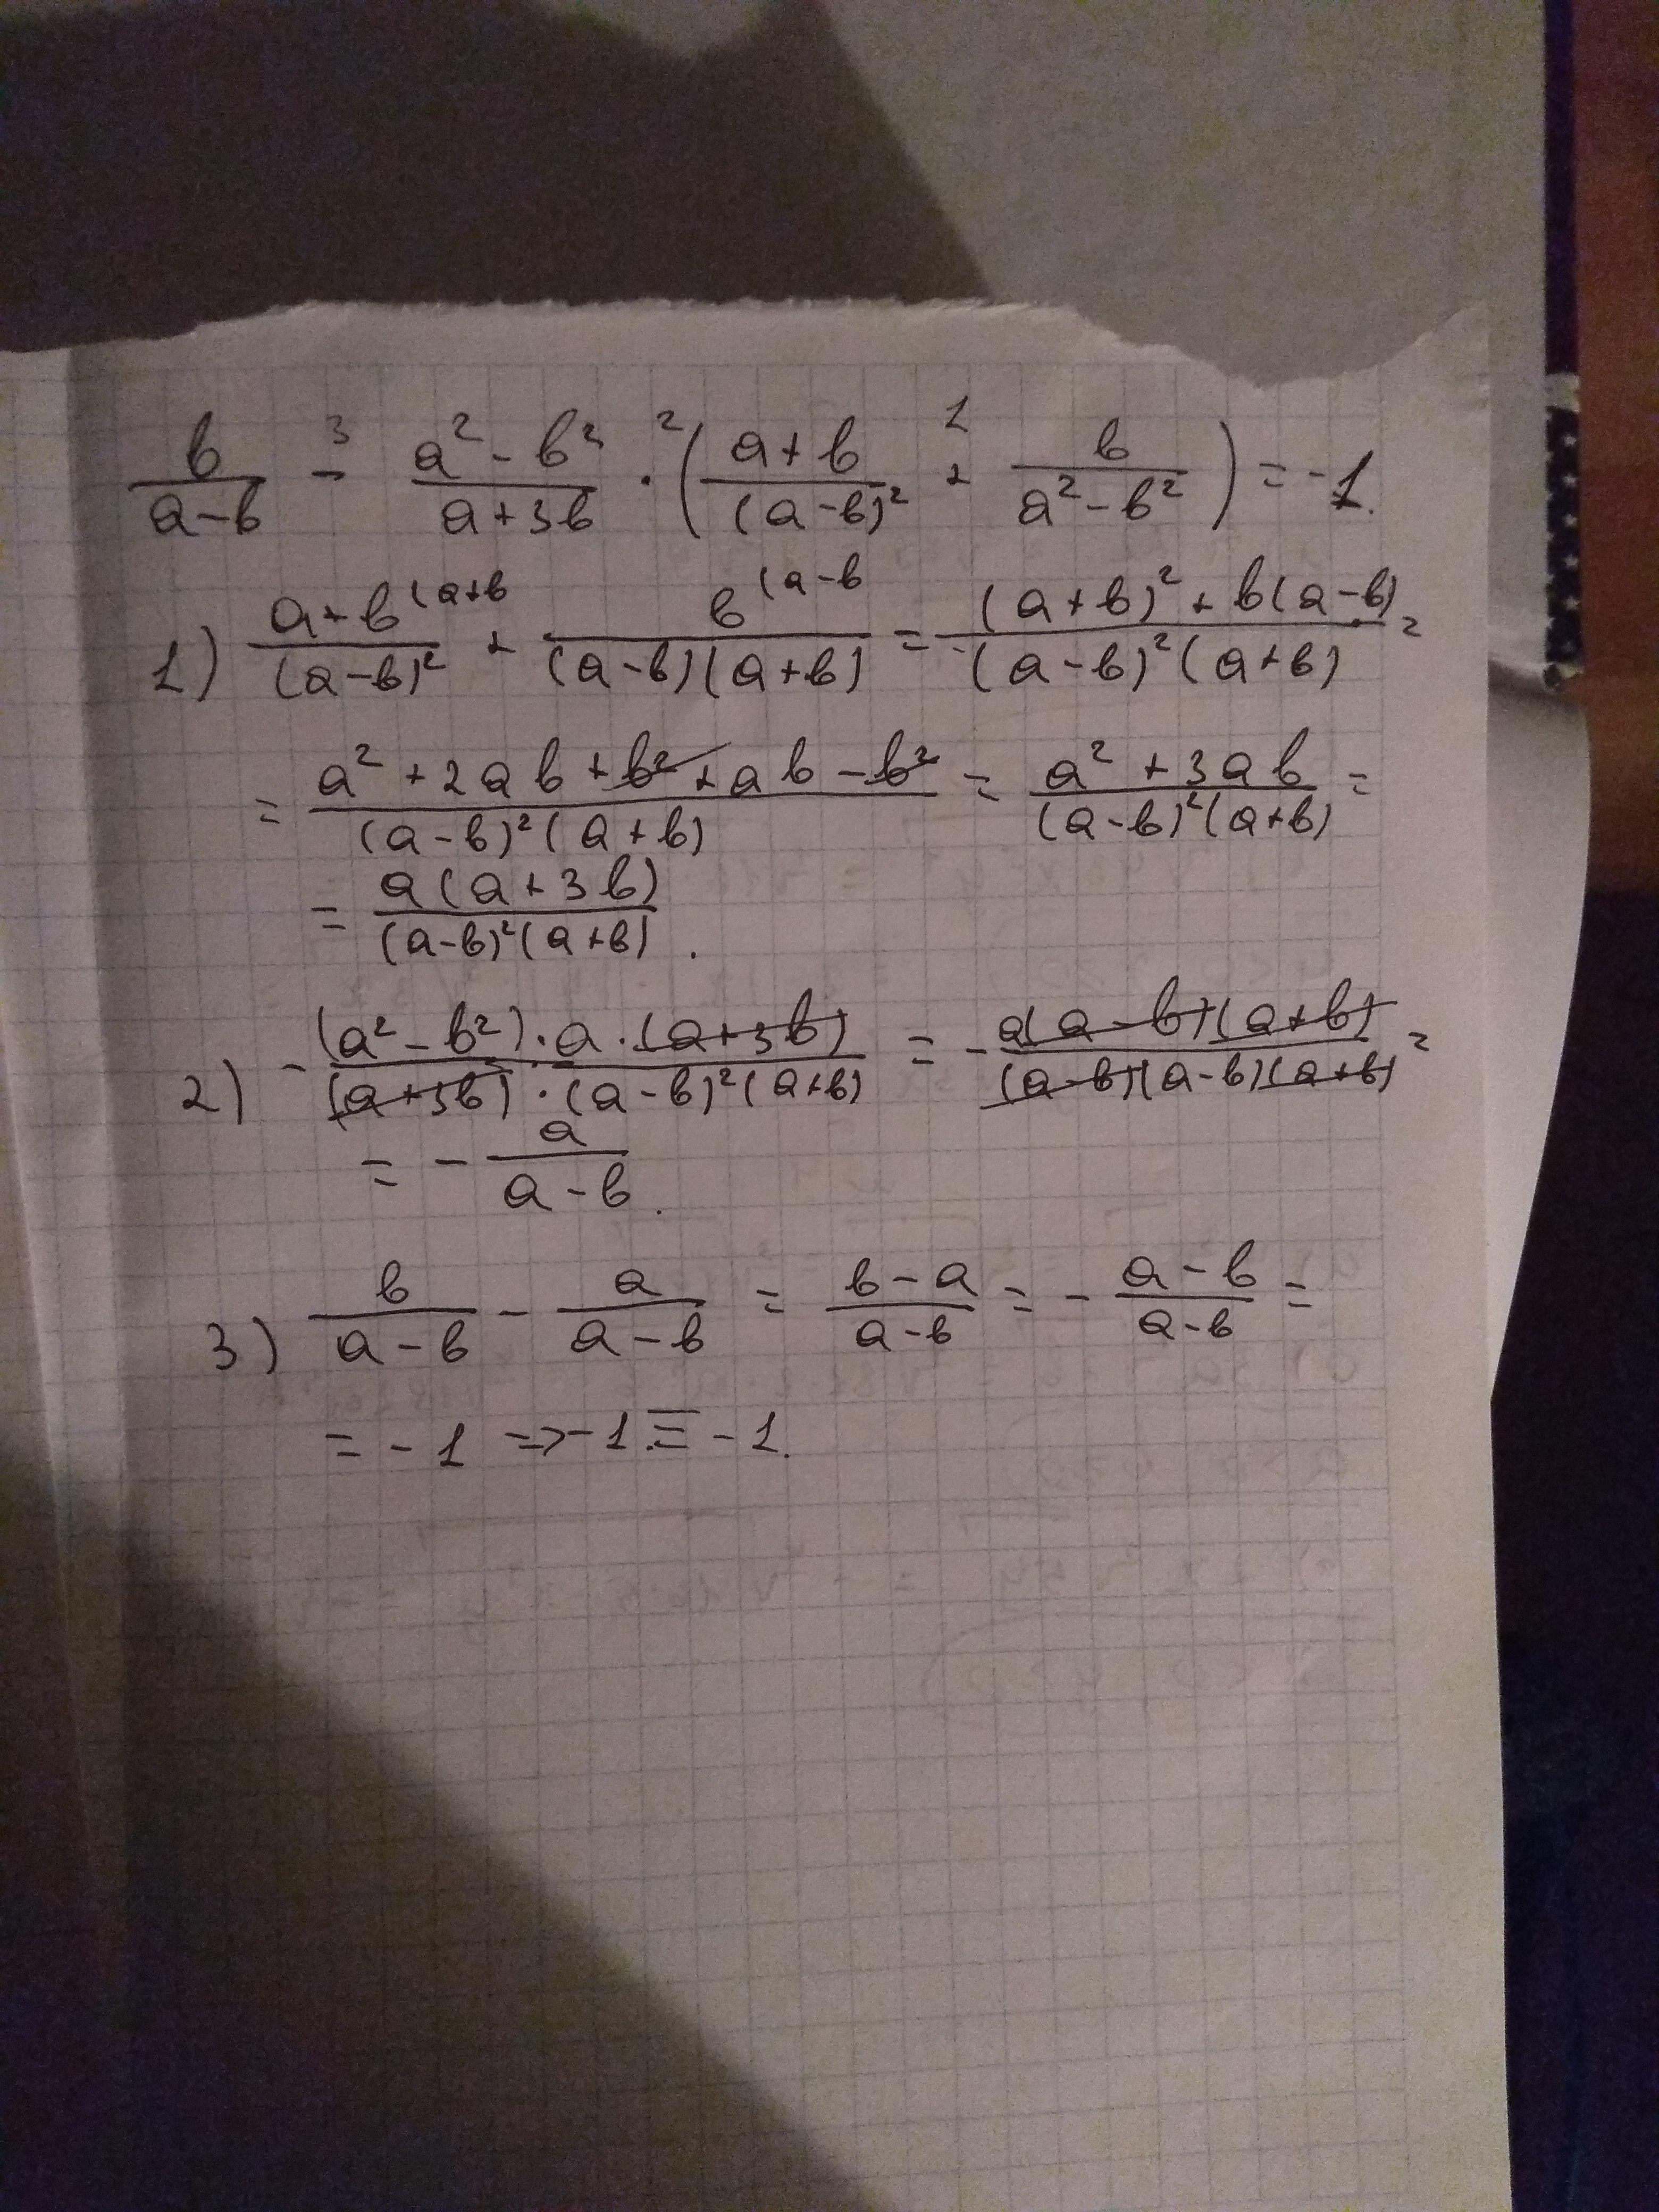 b/(a-b) -³ (a²-b²)/(a+3b) ·² ((a+b)/(a-b)² +¹ b/(a²-b²)) = -1.
1) (a+b^(a+b)/(a-b)² + b^(a-b/((a-b)(a+b)) = ((a+b)²+b(a-b))/((a-b)²(a+b)) =
= (a²+2ab+b²+ab-b²)/((a-b)²(a+b)) = (a²+3ab)/((a-b)²(a+b)) =
= a(a+3b)/((a-b)²(a+b)).
2) - ((a²-b²)·a·(a+3b))/((a+3b)·(a-b)²(a+b)) = - (a(a-b)(a+b))/((a-b)(a-b)(a+b)) =
= - a/(a-b).
3) b/(a-b) - a/(a-b) = (b-a)/(a-b) = - (a-b)/(a-b) =
= -1 => -1 ≡ -1.